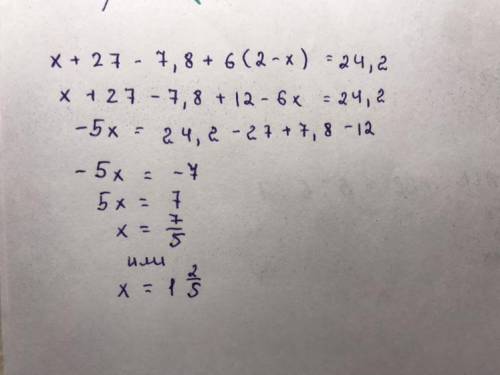 x + 27 - 7,8 + 6(2-x) = 24,2
x + 27 - 7,8 + 12 - 6x = 24,2
-5x = 24,2 - 27 + 7,8 - 12
-5x = -7
5x = 7
x = 7/5
или
x = 1 2/5